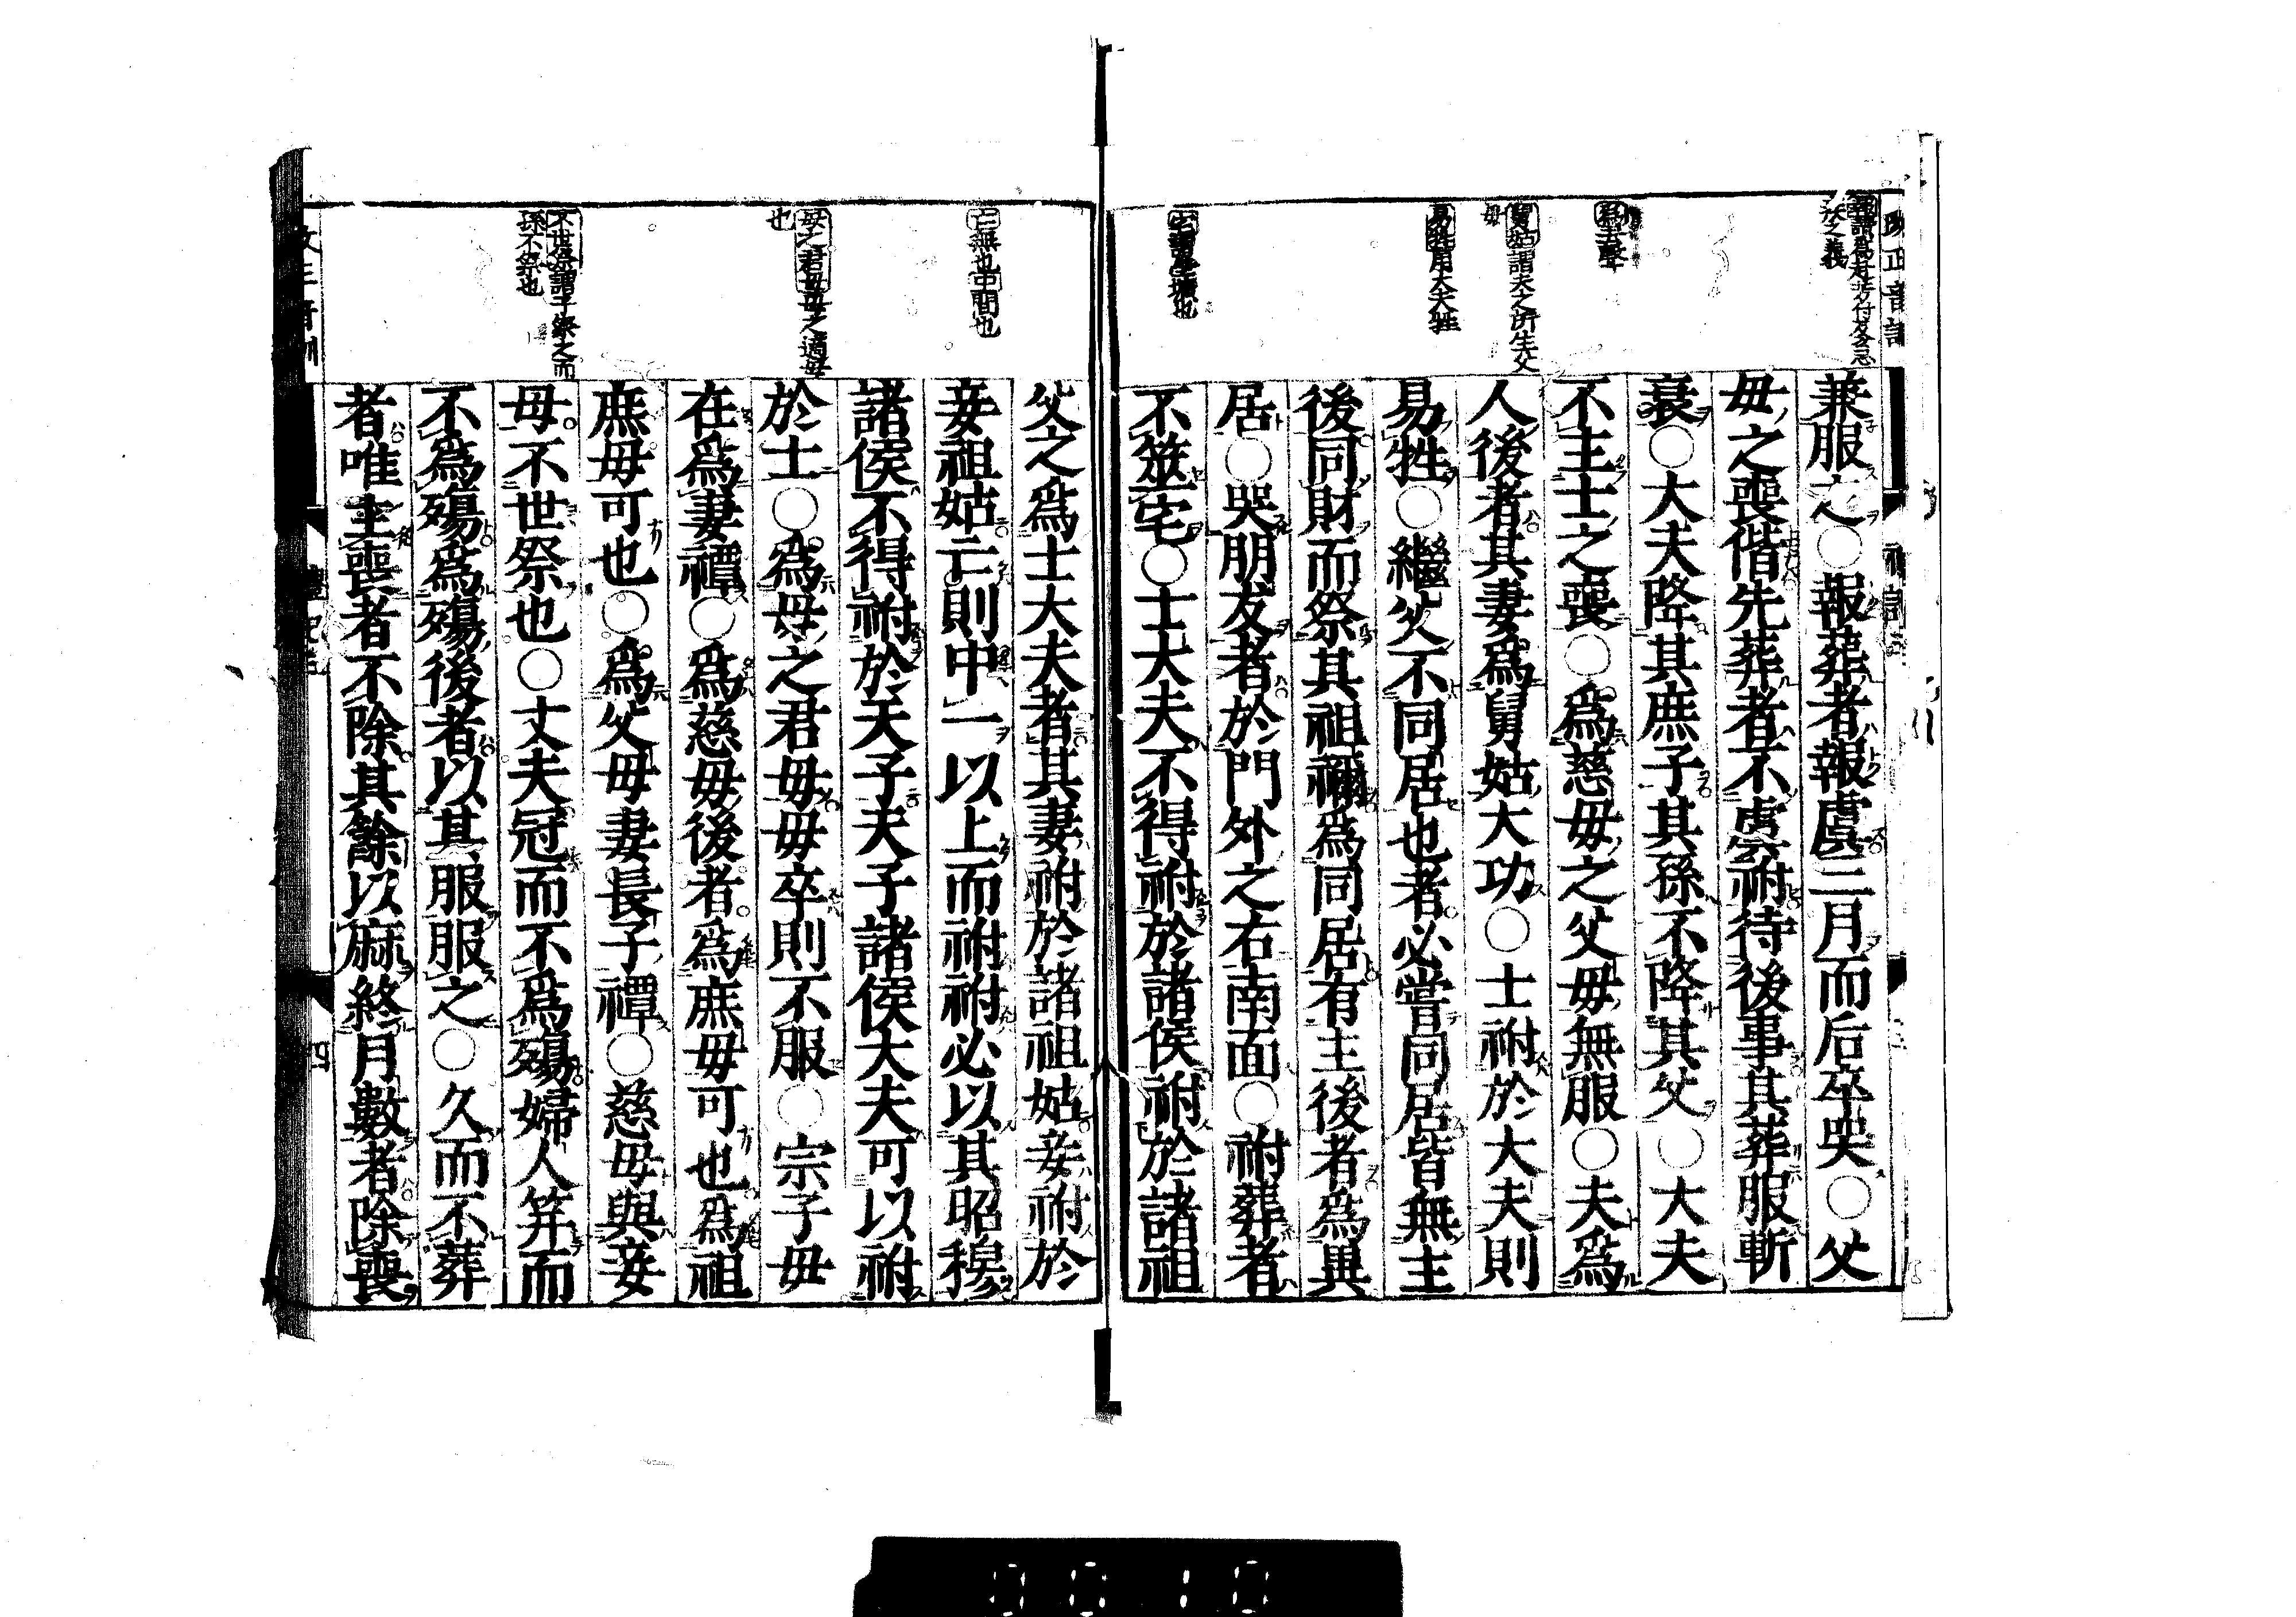 兼服之○報葬者報虞三月而后卒哭○父
母之喪偕先葬者不虞祔待後事其葬服斬
衰○大夫降其庶子其孫不降其父○大夫
不主士之喪○爲慈母之父母無服○夫爲
人後者其妻爲舅姑大功○士祔於大夫則
易牲○繼父不同居也者必嘗同居皆無主
後同財而祭其祖禰爲同居有主後者爲異
居○哭朋友者於門外之右南面○祔葬者
不筮宅○士大夫不得祔於諸侯祔於諸祖
宅謂塋壙也
易牲用大夫牲
舅姑謂夫之所生父
母
父之爲士大夫者其妻祔於諸祖姑妾祔於
妾祖姑亡則中一以上而祔祔必以其昭穆
諸侯不得祔於天子天子諸侯大夫可以祔
於士○爲母之君母母卒則不服○宗子母
在爲妻禫○爲慈母後者爲庶母可也爲祖
庶母可也○爲父母妻長子禫○慈母與妾
母不世祭也○丈夫冠而不爲殤婦人笄而
不爲殤爲殤後者以其服服之○久而不葬
者唯主喪者不除其餘以麻終月數者除喪
亡無也中間也
母之君母母之適母
也
不世祭謂子祭之而
孫不祭也
四
0010